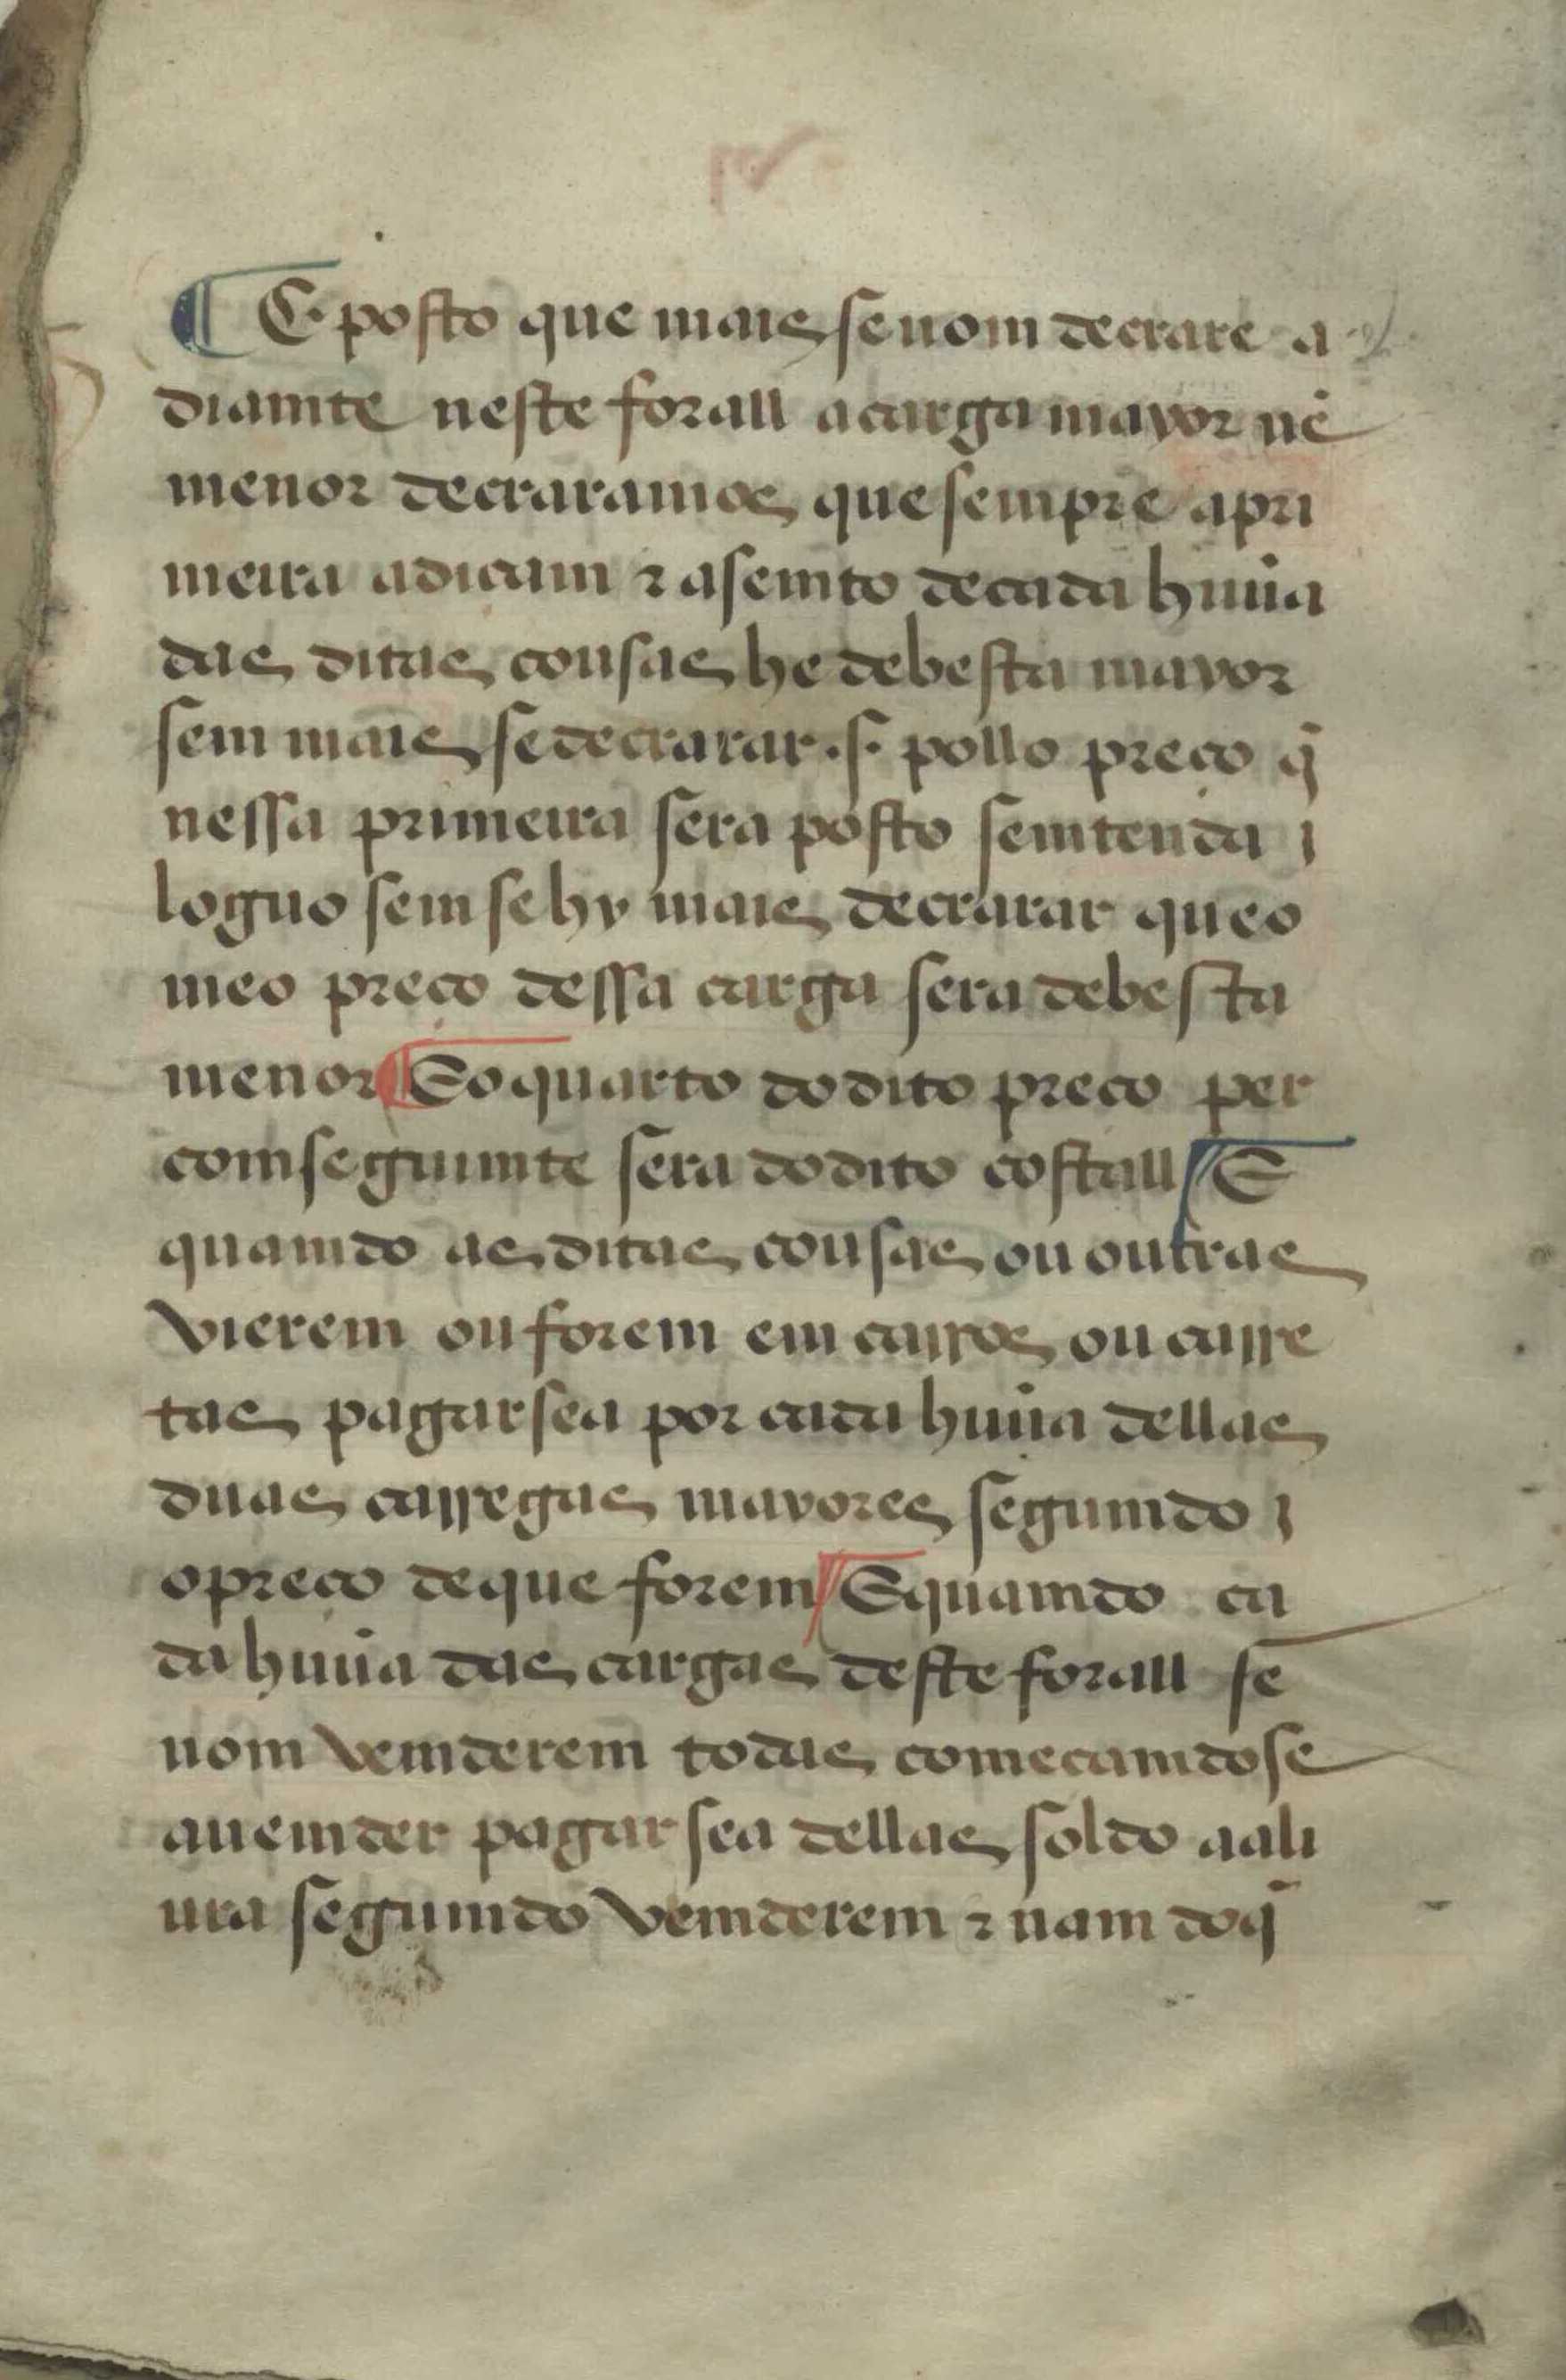 ¶ E posto que mais se nom decrare a
diamte neste forall a carga mayor nẽ
menor decraramos que sempre a pri
meira adicam ⁊ asemto de cada huũa
das ditas cousas he de besta mayor
sem mais se decrarar .s. pollo preço q̃
nessa primeira sera posto semtenda
loguo sem se hy mais decrarar que o
meo preço dessa carga sera de besta
menor ¶ E o quarto do dito preço per
comseguimte sera do dito costall ¶ E
quamdo as ditas cousas ou outras
vierem ou forem em carros ou carre
tas pagarsea por cada huũa dellas
duas carregas mayores segumdo
o preço de que forem ¶ E quamdo ca
da huũa das cargas deste forall se
nom vemderem todas começamdose
a uemder pagarsea dellas soldo aa li
ura segumdo vemderem ⁊ nam do q̃